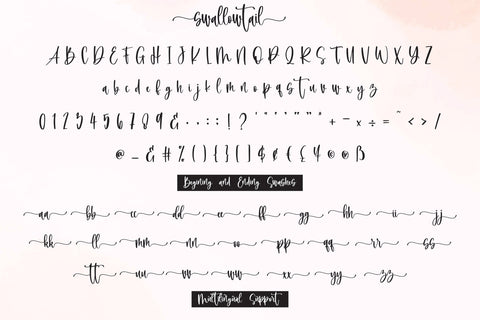 swallowtail
A B C D E F G H I J K L M N O P Q R S T U V W X Y Z
a b c d e f g h i j k l m n o p q r s t u v w x y z
0 1 2 3 4 5 6 7 8 9 & . , : ; ! ? ' ' ' " " " * + - × ÷ = ~ < > /
@ _ & # % ( ) { } [ ] $ ¢ € £ ¥ © ® ß
Begining and Ending Swashes
aa bb cc dd ee ff gg hh ii jj
kk ll mm nn oo pp qq rr ss
tt uu vv ww xx yy zz
Multilingual Support